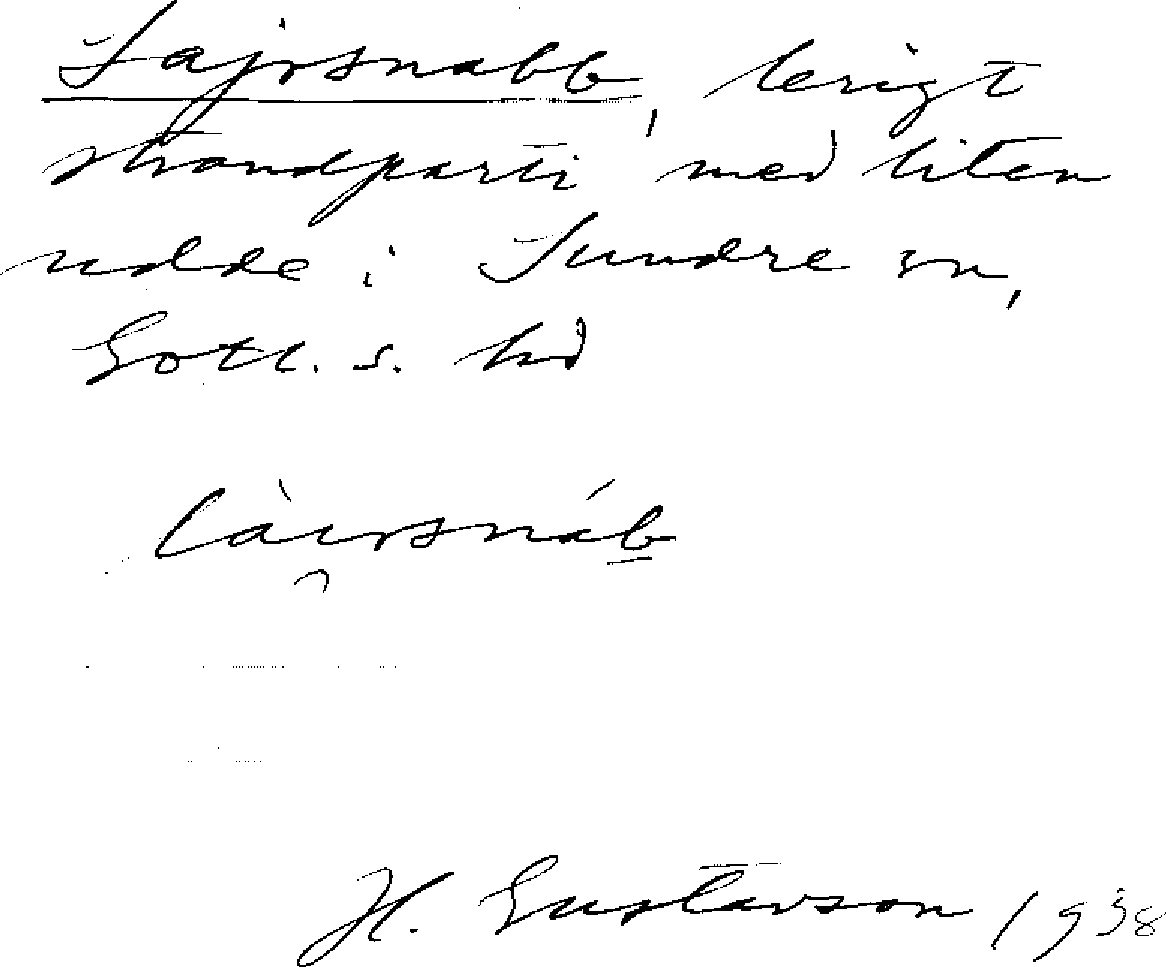 Lajrsnabb, lerigt
strandparti med liten
udde i Sundre sn,
Gotl. s. hd
làirsnáb
H. Gustavson 1938